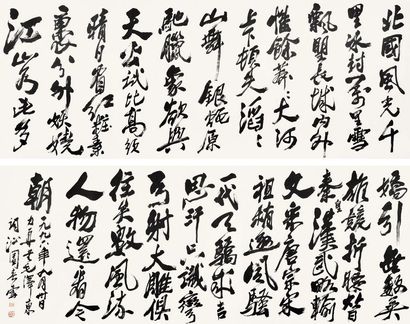 北國風光千
里冰封萬里雪
飄望長城內外
惟餘莽莽大河
上下頓失滔滔
山舞銀蛇原
馳蠟象欲與
天公試比高須
晴日看紅裝素
裹分外妖嬈
江山如此多
嬌引無數英
雄競折腰惜
秦皇漢武略輸
文采唐宗宋
祖稍遜風騷
一代天驕成吉
思汗只識彎
弓射大雕俱
往矣數風流
人物還看今
朝
一九八六年九月廿日
毛澤東
詞